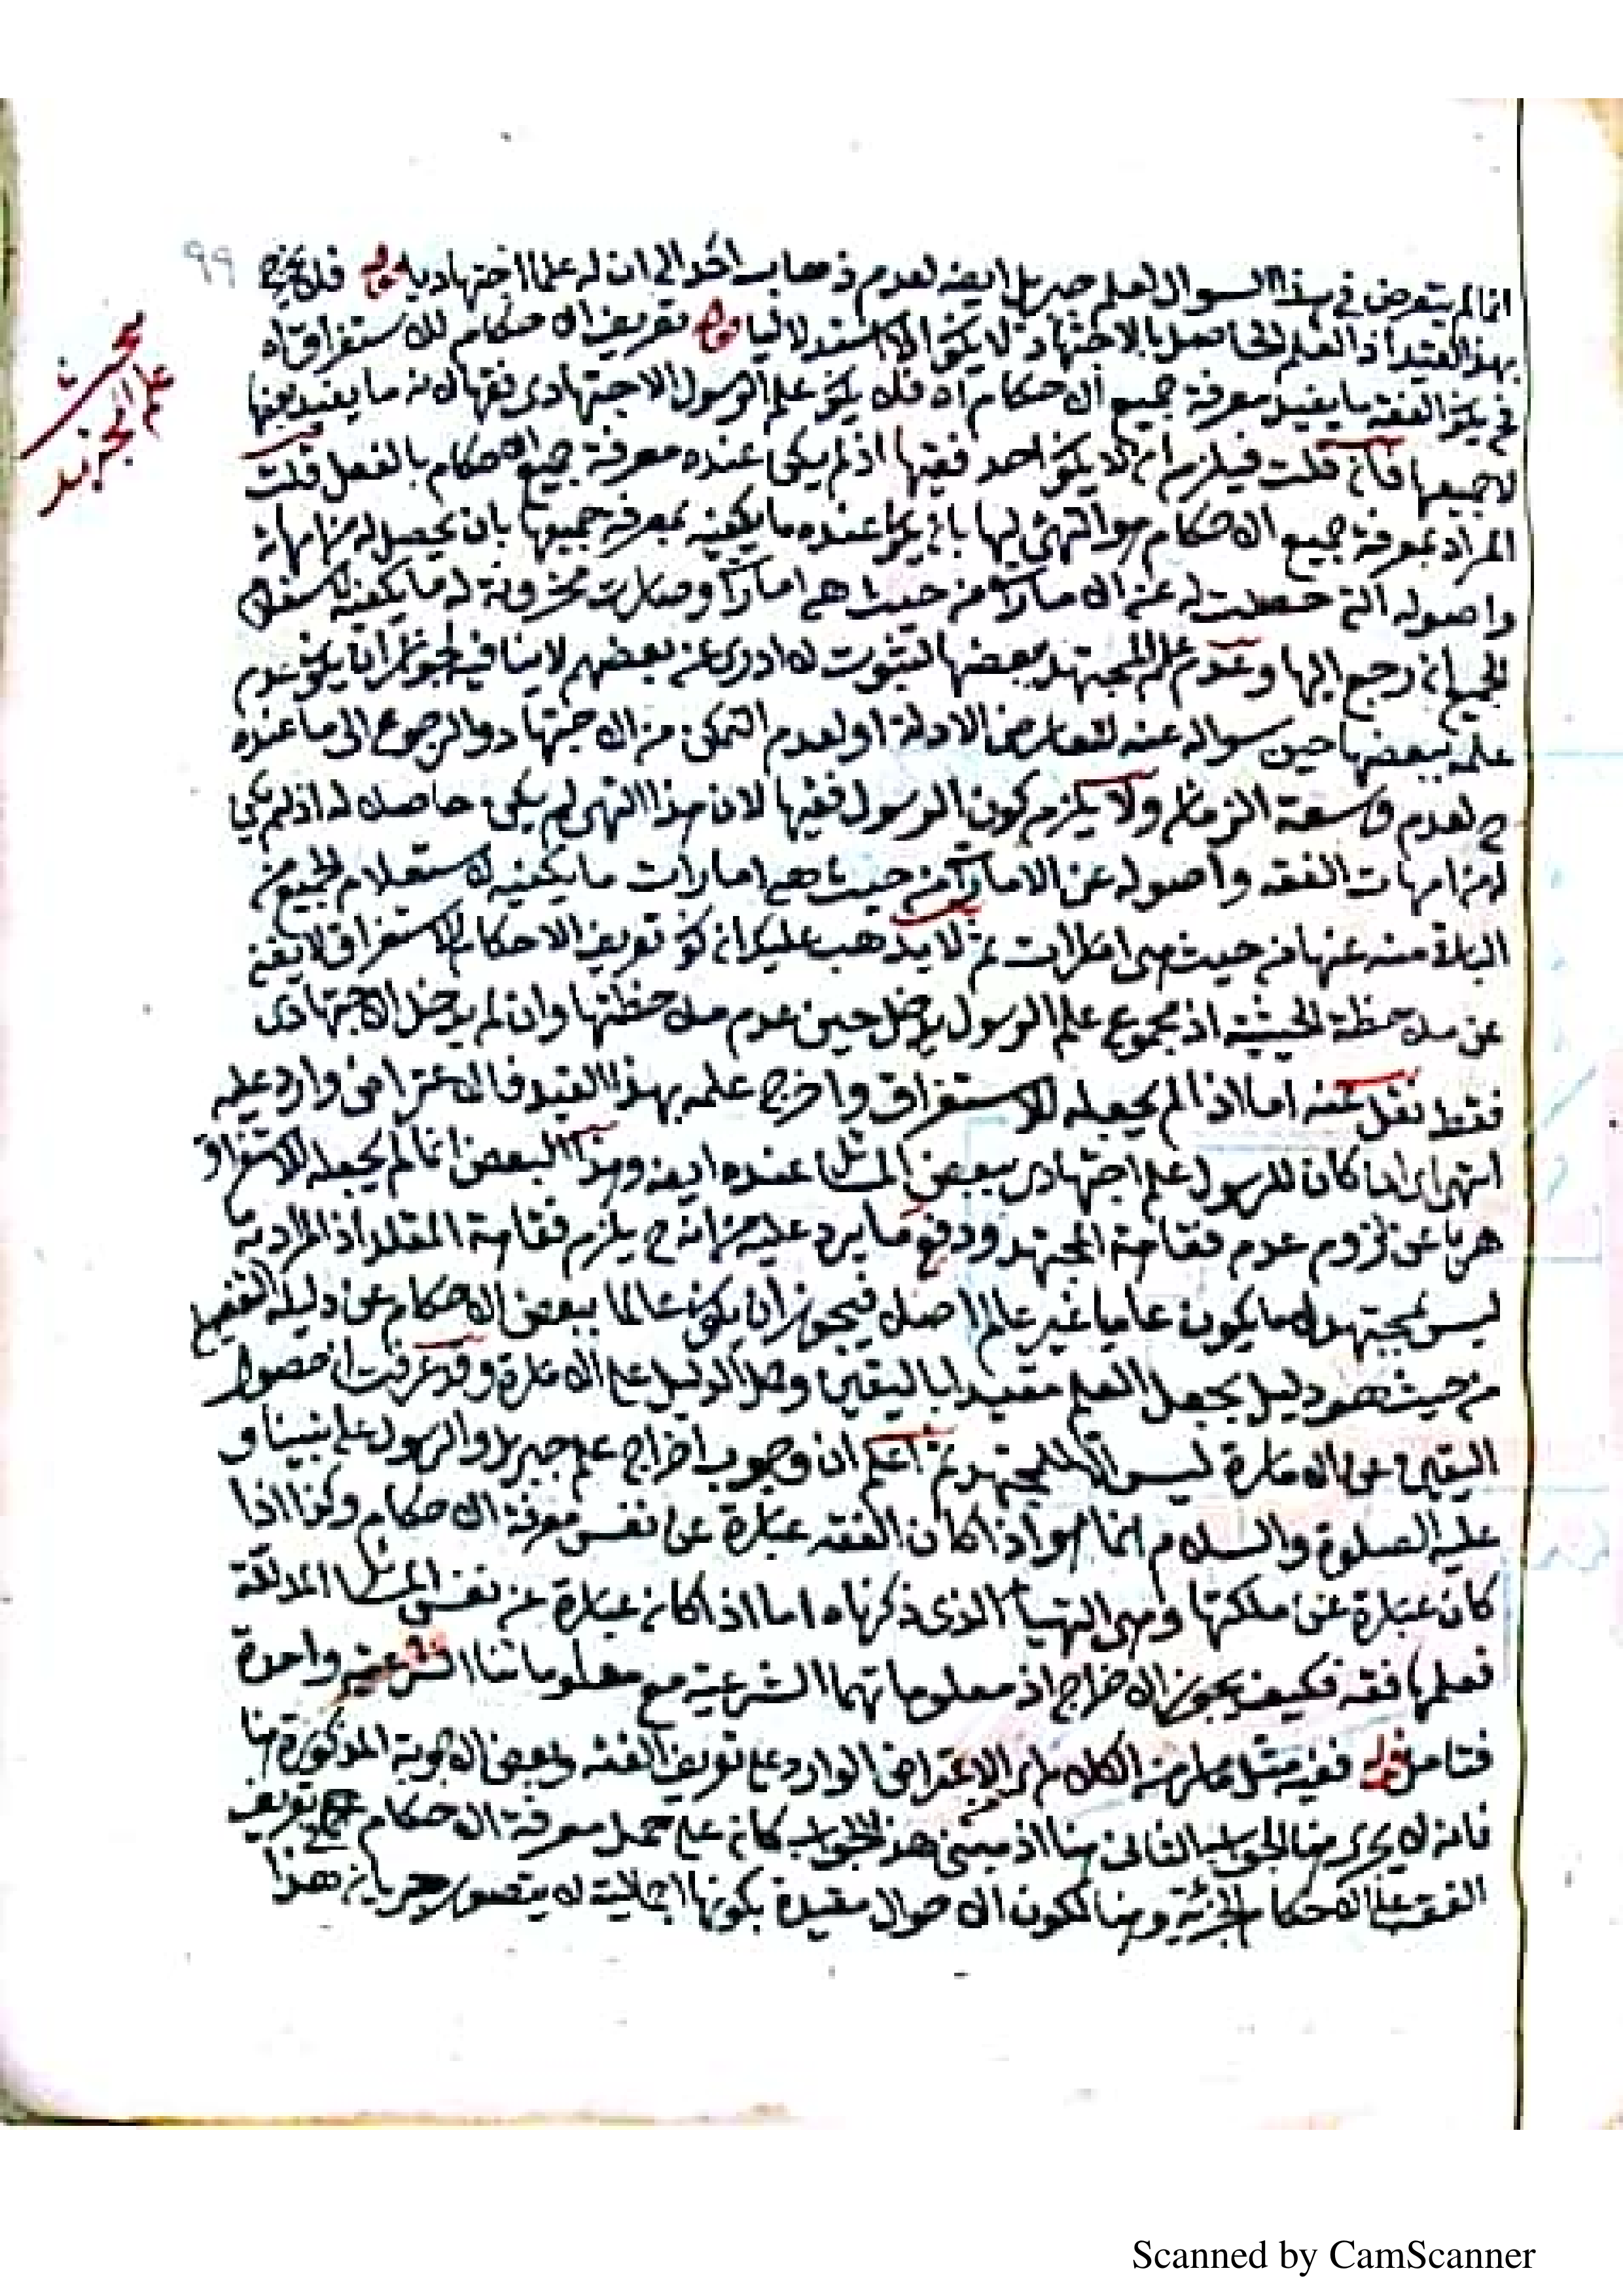 ٩٩
انما لم يتعرض في هذا السوال لعلم جبريل ايضه لعدم ذهاب احد الى ان له علما اجتهاديا قوله فلا يخرج
بهذا القيد اذ العلم الحاصل بالاجتهاد لا يكون الا استدلاليا قوله تعريف الاحكام للاستغراق اه
فيكون الفقه ما يفيد معرفة جميع الاحكام اه فلا يكون علم الرسول الاجتهادى فقها لانه ما يفيد بعضها
لا جميعها فان قلت فيلزم ان لا يكون احد فقيها اذ لم يكن عنده معرفة جميع الاحكام بالفعل قلت
المراد بمعرفة جميع الاحكام هو التهيئ لها بان يكون عنده ما يكفيه بمعرفة جميعها بان يحصل له من امهاته
واصوله التى حصلت له عن الامارات من حيث هى امارات وصارت مخزونة له ما يكفيه لاستعلام
الجميع ان رجع اليها وعدم علم المجتهد ببعضها لثبوت لا ادرى عن بعضهم لا ينافيه لجواز ان يكون عدم
علمه ببعضها حين سواله عنه لتعارض الادلة او لعدم التمكن من الاجتهاد والرجوع الى ما عنده
ح لعدم وسعة الزمان ولا يلزم كون الرسول فقيها لان هذا التهئ لم يكن حاصلا له اذ لم يكن
له من امهات الفقه واصوله عن الامارات من حيث هى امارات ما يكفيه لاستعلام الجميع من
منه عنها من حيث هى امارات ثم لا يذهب عليك ان كون تعريف الاحكام للاستغراق لا يغنى
عن ملاحظة الحيثية اذ مجموع علم الرسول يدخل حين عدم ملاحظتها وان لم يدخل الاجتهادى
فقط نقل عنه اما اذا لم يجعله للاستغراق واخرج علمه بهذا القيد فالاعتراض وارد عليه
انتهى لما كان للرسول علم اجتهادى ببعض المسائل عنده ايضه وهذا البعض انما لم يجعله للاستغراق
هربا عن لزوم عدم فقاهة المجتهد ودفع ما يرد عليه من انه ح يلزم فقاهة المقلد اذ المراد به
ليس بمجتهد لا ما يكون عاميا غير عالم اصلا فيجوز ان يكون عالما ببعض الاحكام عن دليله التفصيلى
من حيث هو دليل بجعل العلم مقيدا باليقين وحمل الدليل على الامارة وقد عرفت ان حصول
اليقين عن الامارة ليس الا للمجتهد ثم اعلم ان وجوب اخراج علم جبريل والرسول على نبينا و
عليه الصلوة والسلام انما هو اذا كان الفقه عبارة عن نفس معرفة الاحكام وكذا اذا
كان عبارة عن ملكتها وهى التهيأ الذى ذكرناه اما اذا كان عبارة عن نفس المسائل المدللة
فعلمها فقه فكيف يجوز الاخراج اذ معلوماتهما الشرعية مع معلوماتنا الشرعية واحدة
فتامل قوله ففيه مثل ما مر من الكلام اى الاعتراض الوارد على تعريف الفقه وبعض الاجوبة المذكورة هنا
فانه لا يجرى هنا الجواب الثانى هنا اذ مبنى هذا الجواب كان على حمل معرفة الاحكام تعريف
الفقه على الاحكام الجزئية وهنا لكون الاحوال مقيدة بكونها اجمالية لا يتصور جريان هذا
بحث
علم
Scanned by CamScanner